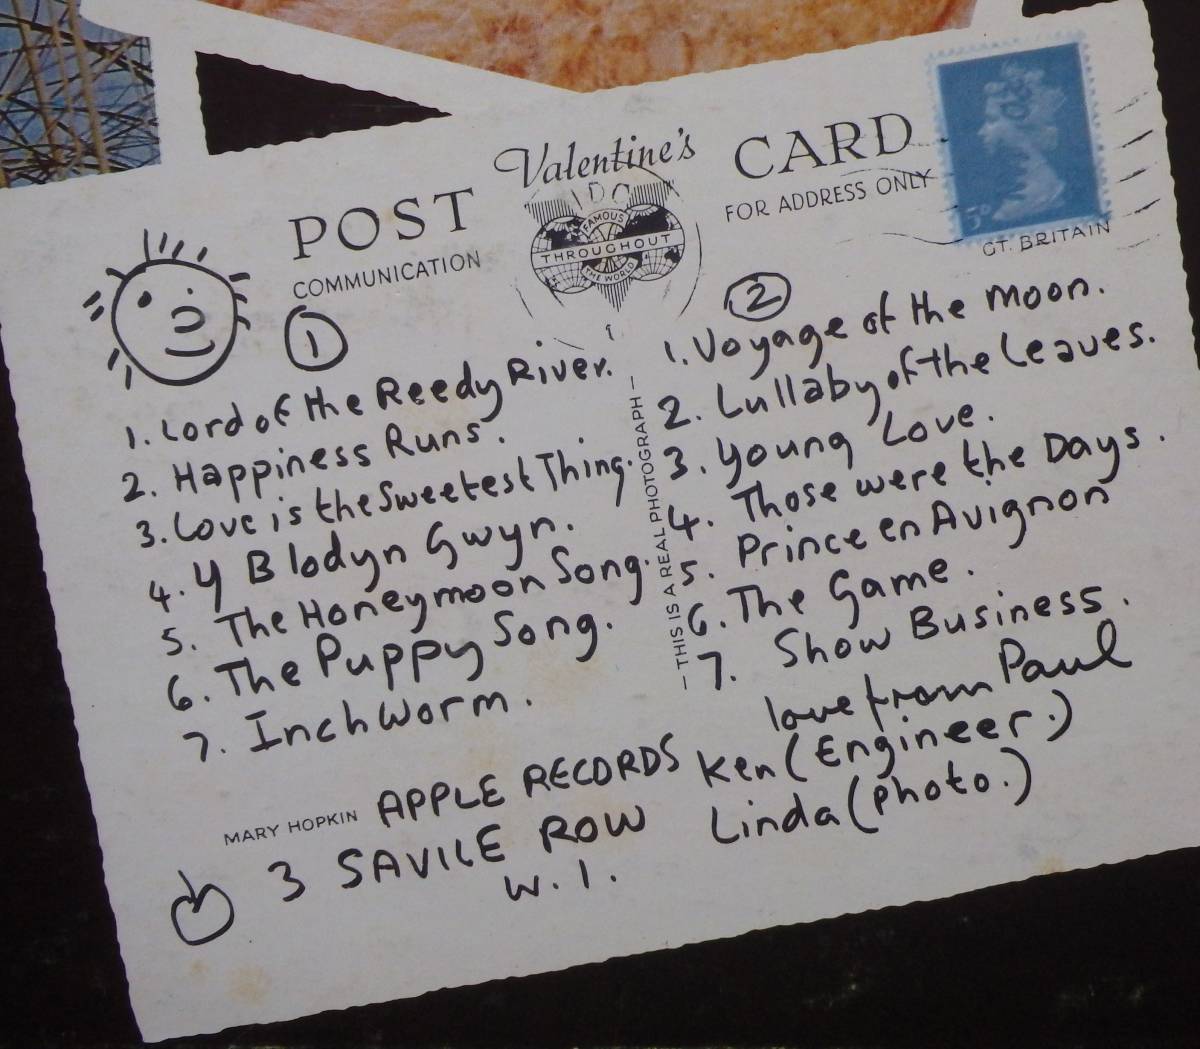 Valentine's
POST CARD
COMMUNICATION
FOR ADDRESS ONLY
FAMOUS
THROUGHOUT
THE WORLD
GT. BRITAIN
1
1. Lord of the Reedy River.
2. Happiness Runs.
3. Love is the Sweetest Thing.
4. Y Blodyn Gwyn.
5. The Honeymoon Song.
6. The Puppy Song.
7. Inchworm.
- THIS IS A REAL PHOTOGRAPH -
2
1. Voyage of the moon.
2. Lullaby of the Leaves.
3. Young Love.
4. Those were the Days.
5. Prince en Avignon
6. The Game.
7. Show Business.
love from Paul
Ken (Engineer.)
Linda (photo.)
MARY HOPKIN APPLE RECORDS
3 SAVILE ROW
W.1.